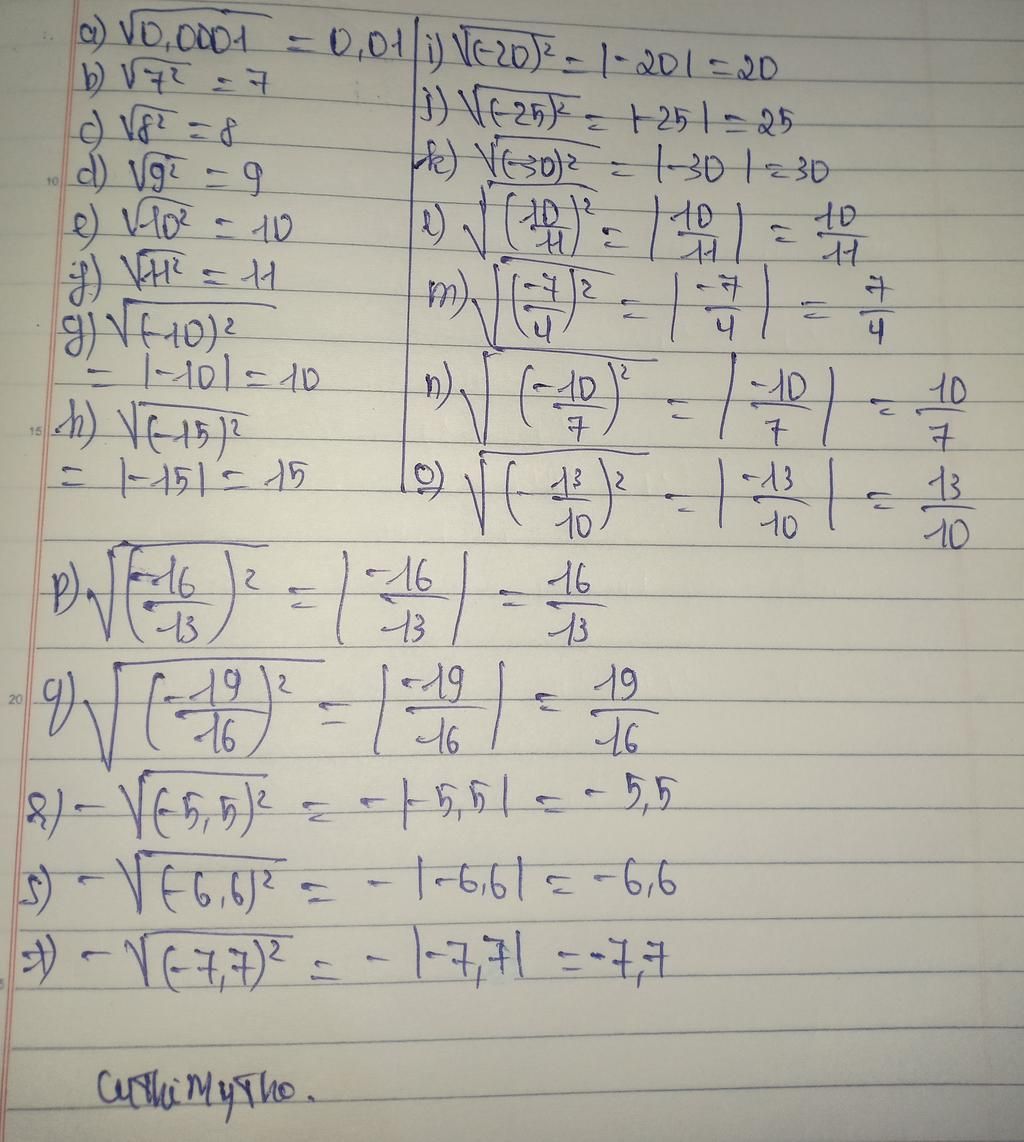 a) √0,0001 = 0,01
b) √7² = 7
c) √8² = 8
d) √9² = 9
e) √10² = 10
f) √11² = 11
g) √(-10)²
= |-10| = 10
h) √(-15)²
= |-15| = 15
i) √(-20)² = |-20| = 20
j) √(-25)² = |-25| = 25
k) √(-30)² = |-30| = 30
l) √(10/11)² = |10/11| = 10/11
m) √(-7/4)² = |-7/4| = 7/4
n) √(-10/7)² = |-10/7| = 10/7
o) √(-13/10)² = |-13/10| = 13/10
p) √(-16/13)² = |-16/13| = 16/13
q) √(-19/16)² = |-19/16| = 19/16
r) -√(-5,5)² = -|-5,5| = -5,5
s) -√(-6,6)² = -|-6,6| = -6,6
t) -√(-7,7)² = -|-7,7| = -7,7
10
15
20